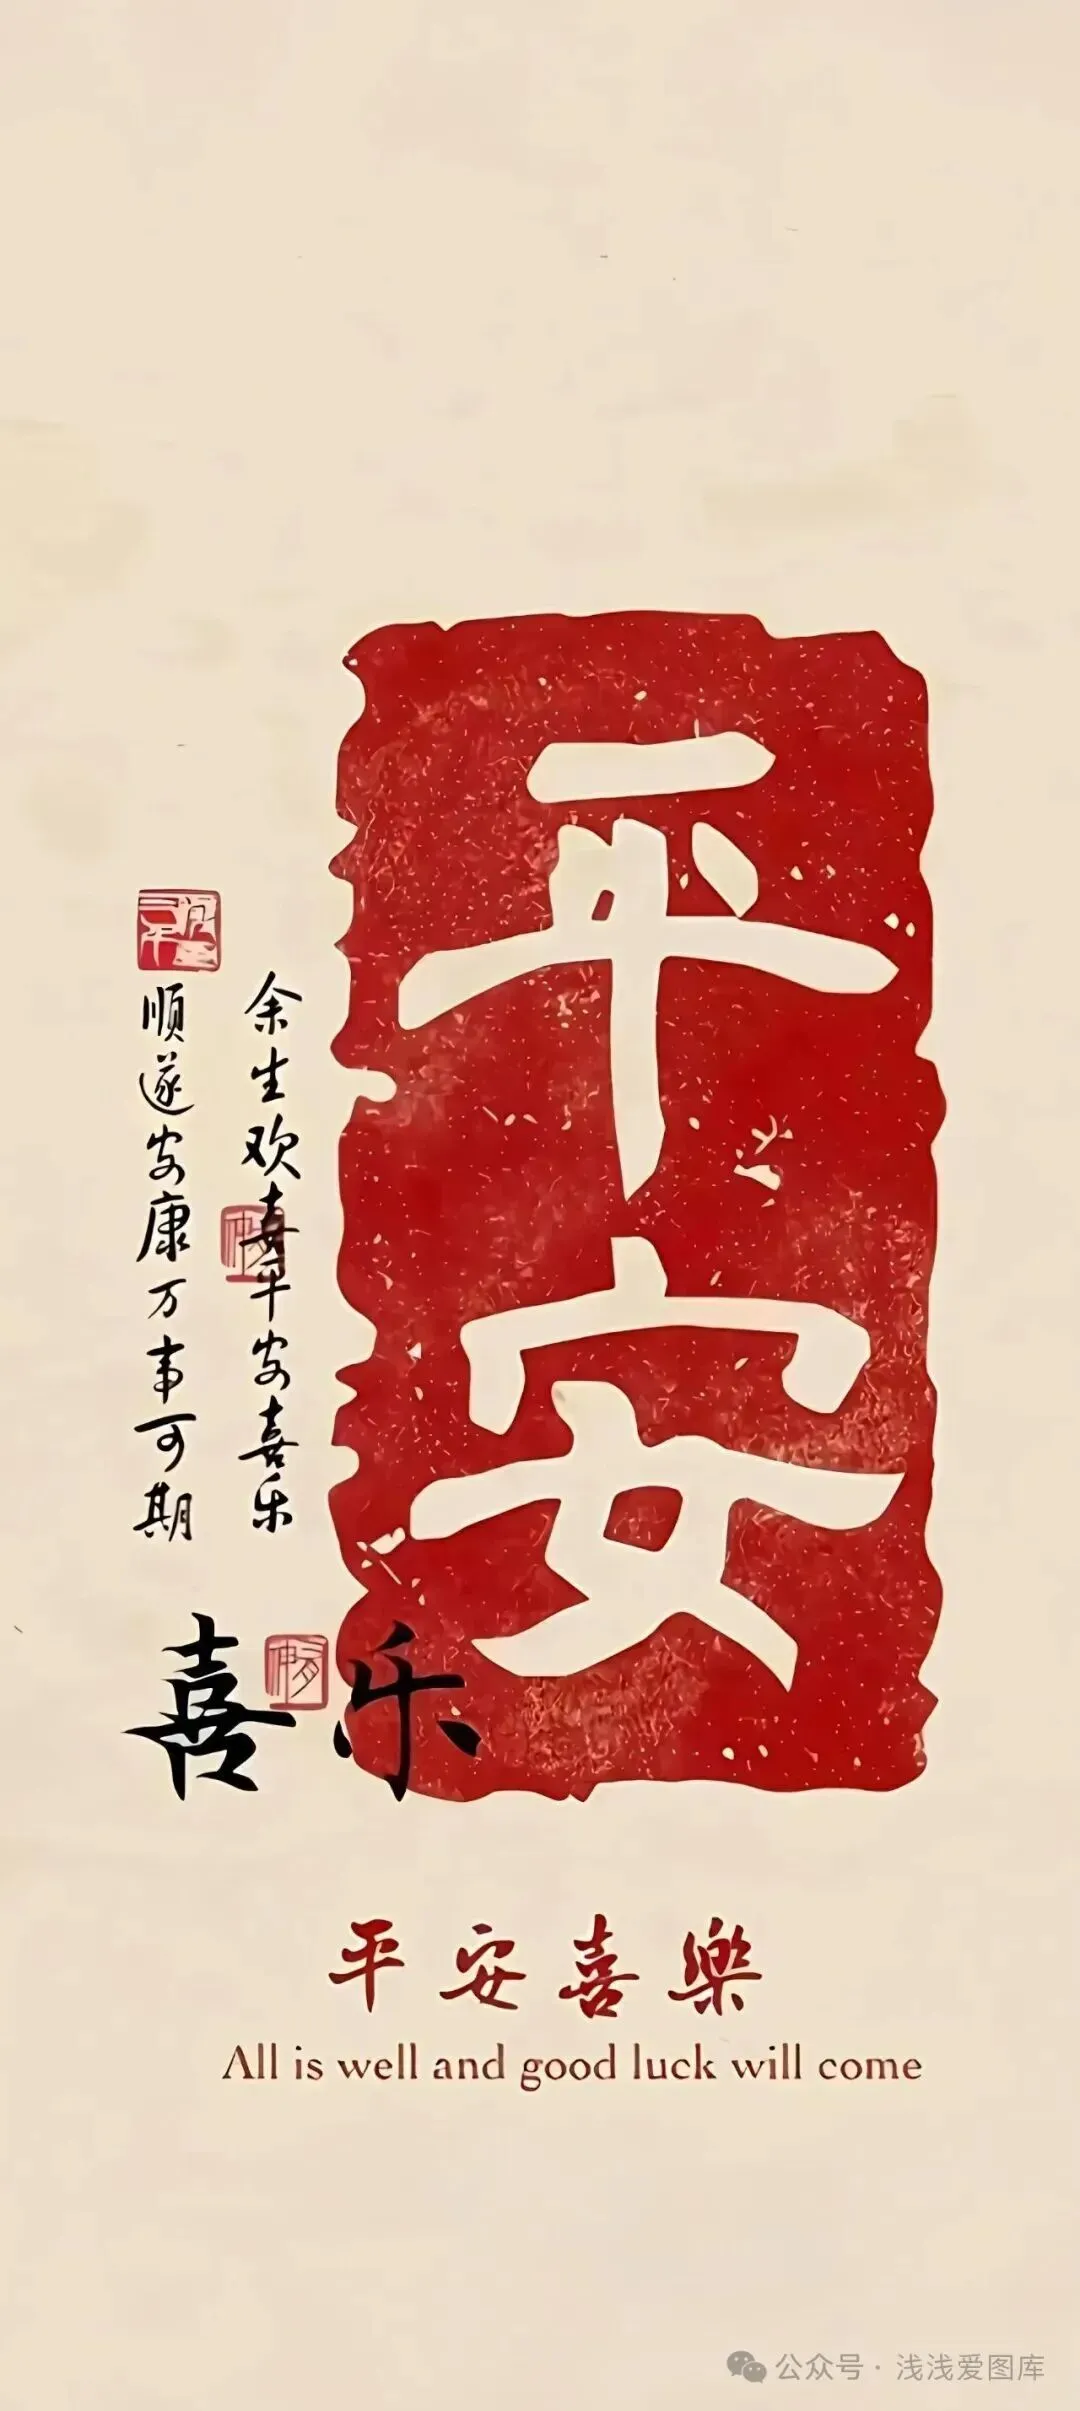 平安
余生欢喜平安喜乐
顺遂安康万事可期
喜乐
平安喜樂
All is well and good luck will come
公众号·浅浅爱图库